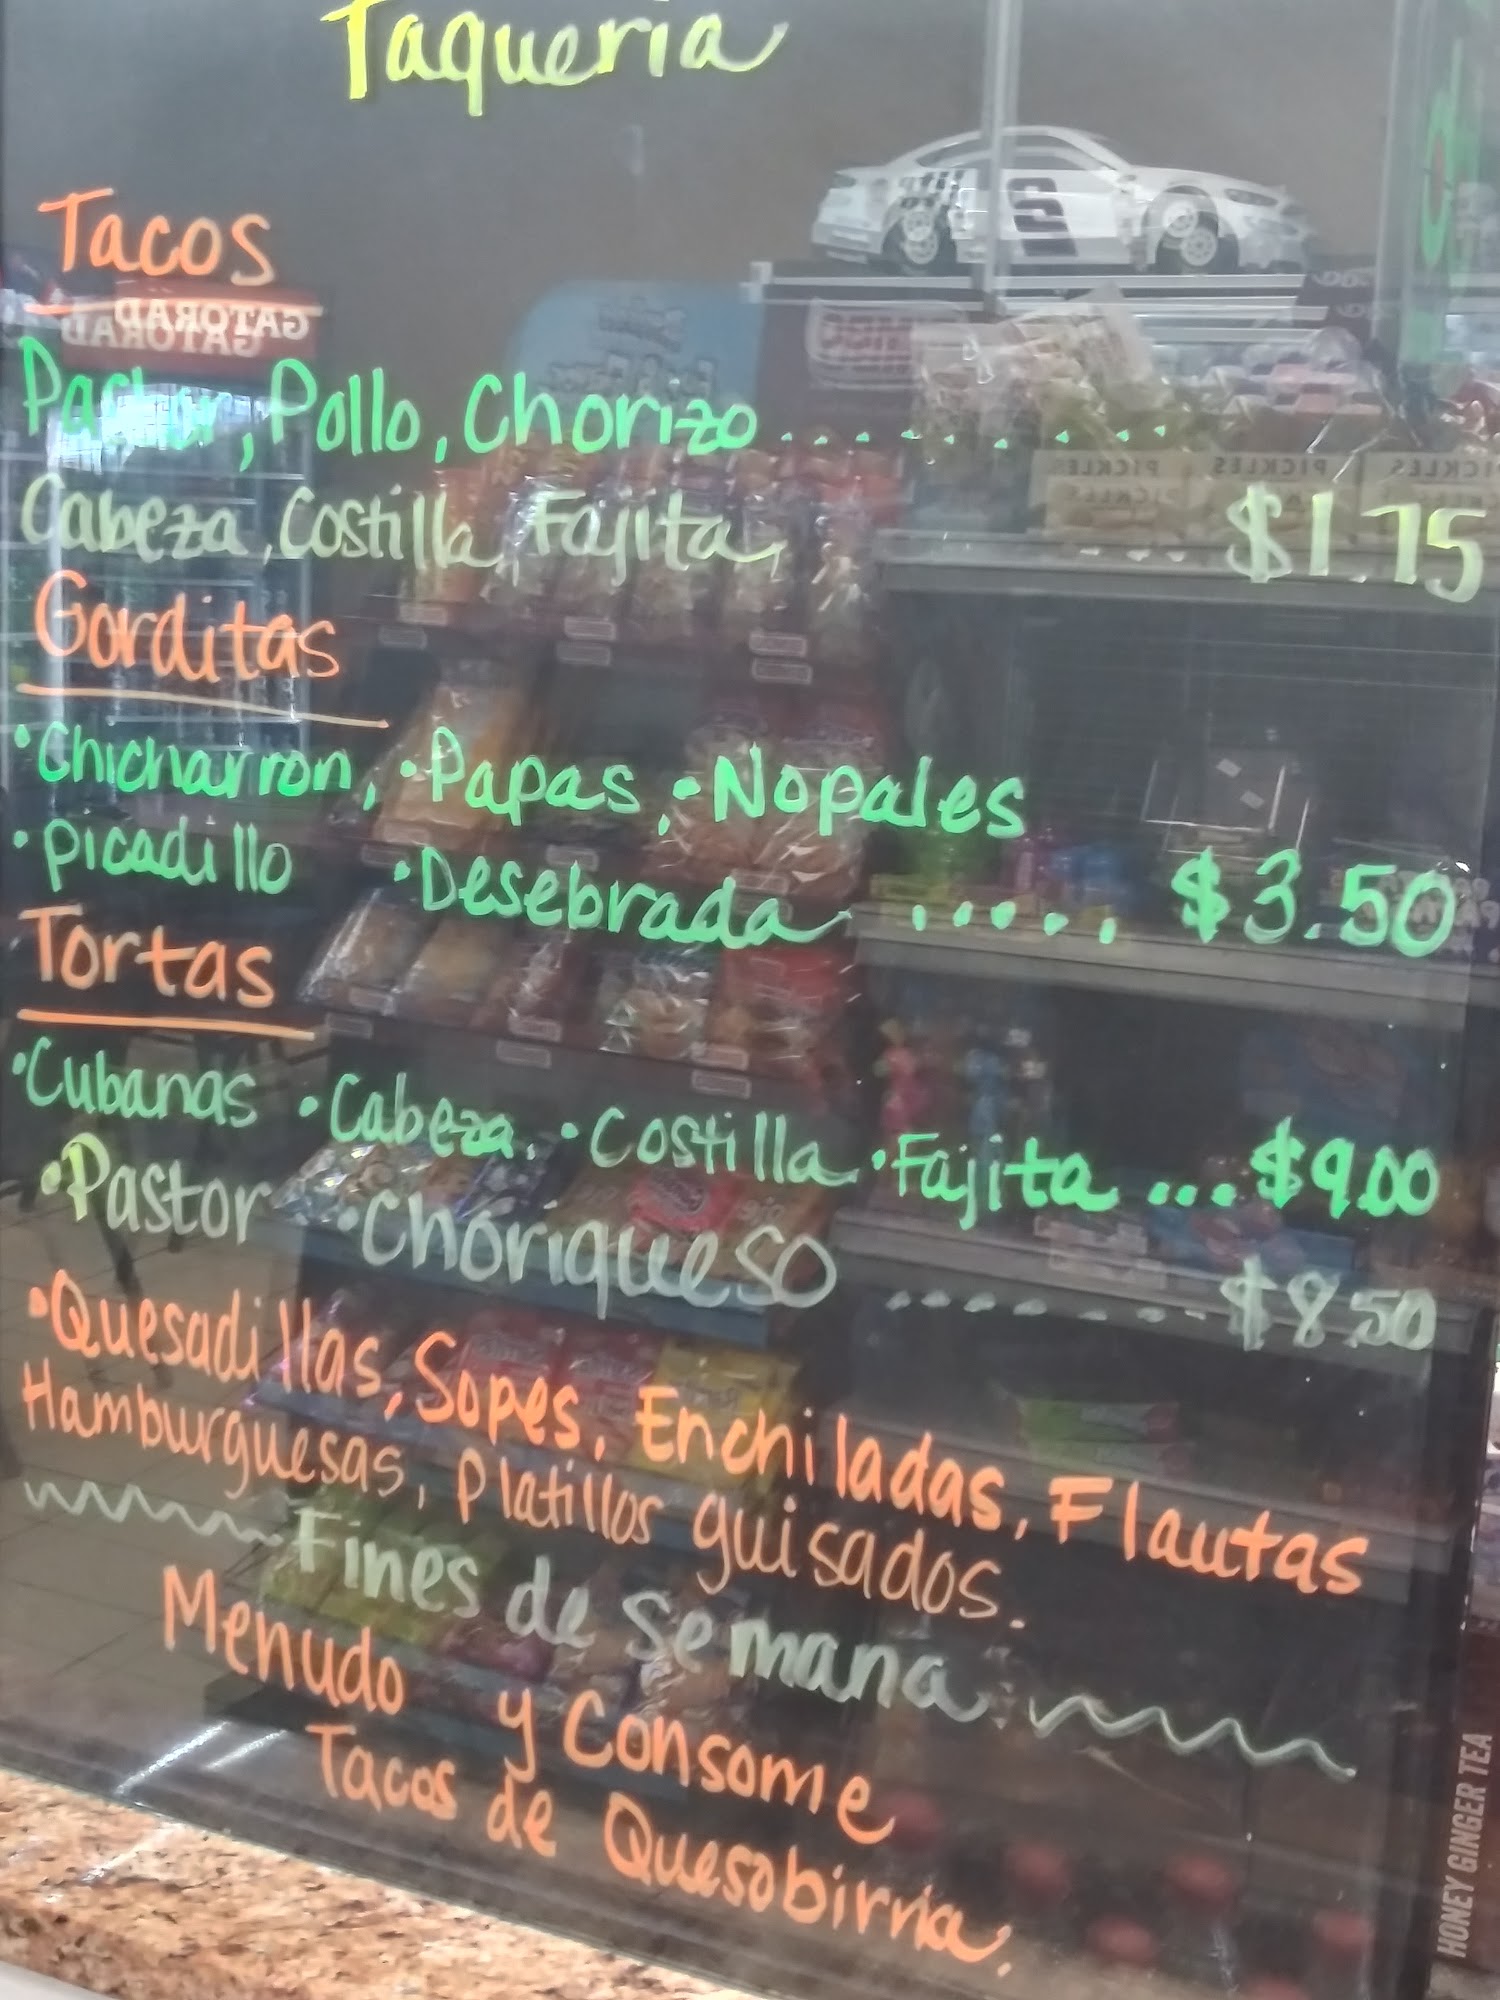 Taqueria
Tacos
Pastor, Pollo, Chorizo..........
Cabeza, Costilla, Fajita, .... $1.75
Gorditas
•Chicharron, •Papas, •Nopales
•Picadillo •Desebrada ...... $3.50
Tortas
•Cubanas •Cabeza, •Costilla •Fajita ... $9.00
•Pastor •Choriqueso ........ $8.50
•Quesadillas, Sopes, Enchiladas, Flautas
Hamburguesas, Platillos guisados.
Fines de Semana
Menudo y Consome
Tacos de Quesobirria.
GATORAD
GATORAD
2
PICKLES
PICKLES
PICKLES
HONEY GINGER TEA